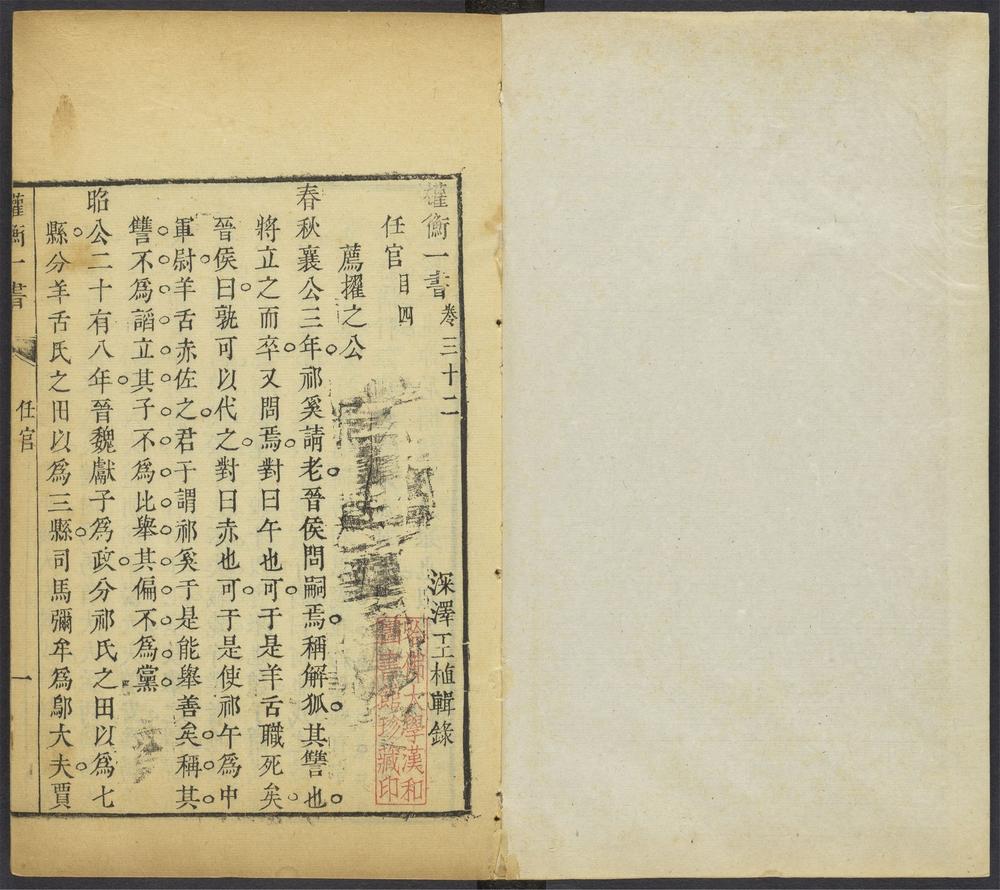 權衡一書卷三十二
深澤王植輯錄
任官目四
薦擢之公
春秋襄公三年祁奚請老晉侯問嗣焉稱解狐其讐也
將立之而卒又問焉對曰午也可于是羊舌職死矣
晉侯曰孰可以代之對曰赤也可于是使祁午為中
軍尉羊舌赤佐之君于謂祁奚于是能舉善矣稱其
讐不為謟立其子不為比舉其偏不為黨
昭公二十有八年晉魏獻子為政分祁氏之田以為七
縣分羊舌氏之田以為三縣司馬彌牟為鄔大夫賈
權衡一書
任官
一
哈佛大學漢和
圖書館珍藏印